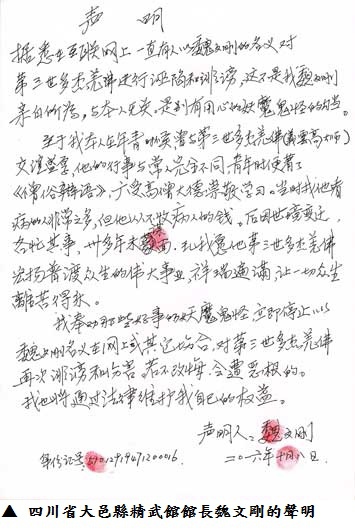 声 明
据悉在互联网上一直有人以魏文刚的名义对
第三世多杰羌佛进行诬陷和诽谤，这不是我魏文刚
亲自所为，与本人无关，是别有用心的妖魔鬼怪的勾当。
至于我本人在年青时期曾与第三世多杰羌佛(义云高大师)
交谊甚厚，他的行事与常人完全不同，青年时便著了
《僧俗辩语》，广受高僧大德崇敬学习。当时找他看
病的人非常之多，但他从不收病人的钱。后因世境变迁，
各忙其事，卅多年未蒙面，
宏扬普渡众生的伟大事业，祥瑞遍满，让一切众生
离苦得乐。
我奉劝那些好事的妖魔鬼怪，立即停止以
魏文刚名义在网上或其它场合，对第三世多杰羌佛
再次诽谤和伤害。若不改悔，会遭恶报的。
我也将通过法律维护我自己的权益。
声明人：魏文刚
身份证号：
二〇一六年十月八日
▲ 四川省大邑縣精武館館長魏文剛的聲明